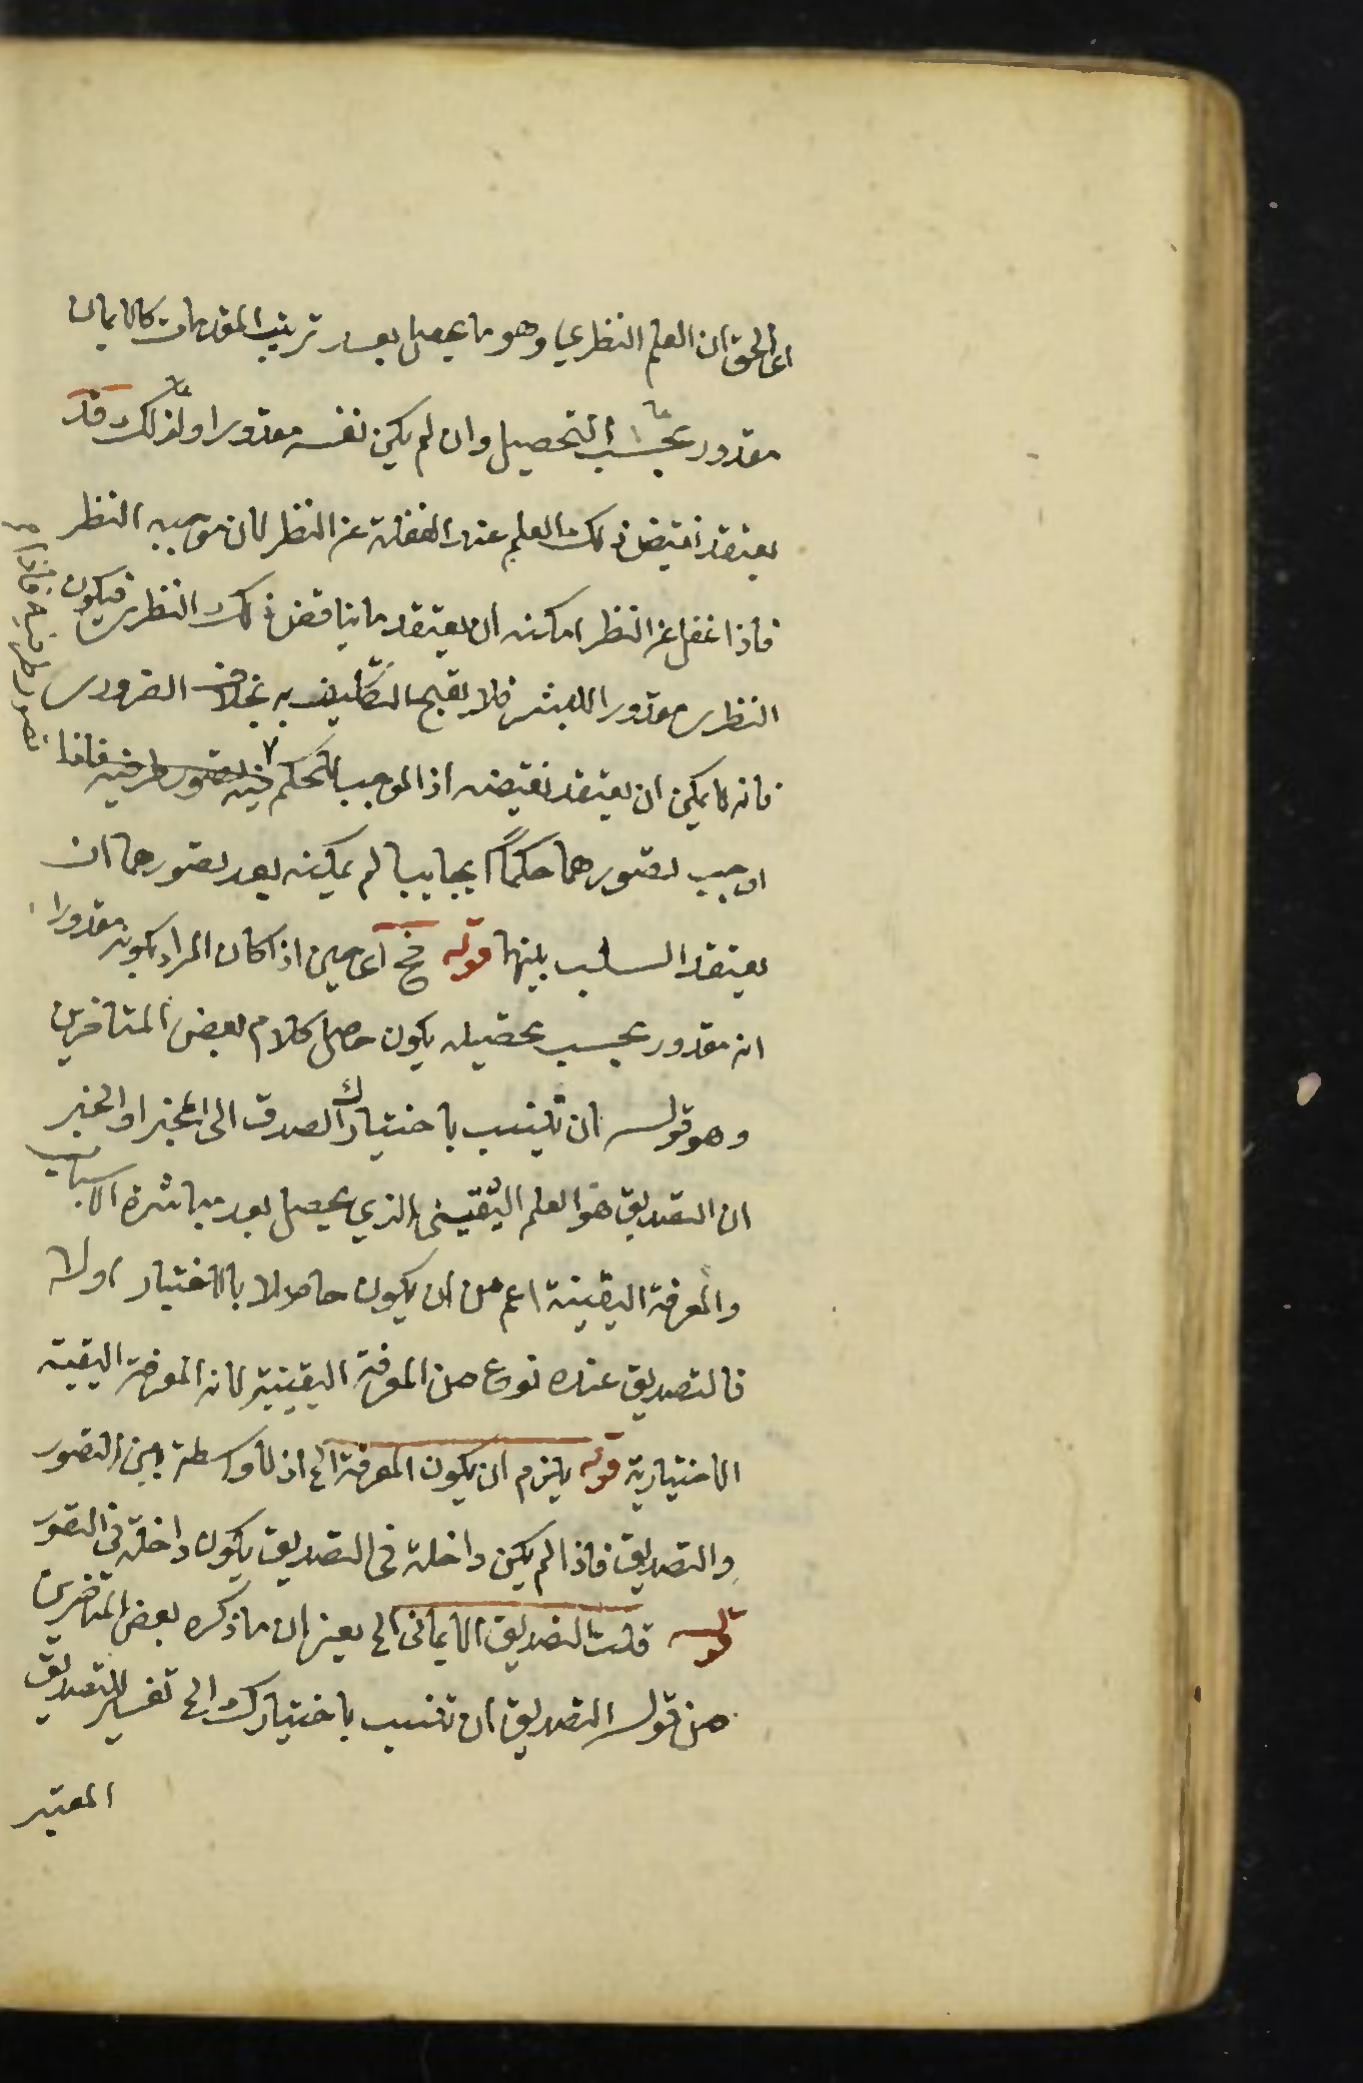 اى الحق ان العلم النظري وهو ما يحصل بعد ترتيب المقدمات كالايمان
مقدور بحسب التحصيل وان لم يكن نفسه مقدورا ولذلك قد
يعتقد نقيض ذلك العلم عند الغفلة عن النظر لان موجبه النظر
فاذا غفل عن النظر امكنه ان يعتقد ما يناقض ذلك النظرى فيكون
النظرى مقدورا للبشر فلا يقبح التكليف به بخلاف الضرورى
فانه لا يمكن ان يعتقد نقيضه اذ الموجب للحكم فيه تصور طرفيه فاذا
اوجب تصورهما حكما ايجابيا لم يمكنه بعد تصورهما ان
يعتقد السلب بينهما قوله فح اى حين اذا كان المراد بكونه مقدورا
انه مقدور بحسب تحصيله يكون حاصل كلام بعض المتاخرين
وهو قوله ان تنسب باختيارك الصدق الى المخبر او الخبر
ان التصديق هو العلم اليقينى الذي يحصل بعد مباشرة الاسباب
والمعرفة اليقينية اعم من ان يكون حاصلا بالاختيار اولا
فالتصديق عنده نوع من المعرفة اليقينية لانه المعرفة اليقينة
الاختيارية قوله يلزم ان يكون المعرفة الخ اذ لا واسطة بين التصور
والتصديق فاذا لم يكن داخلة فى التصديق يكون داخلة فى التصور
قوله قلت التصديق الايمانى الخ يعنى ان ما ذكره بعض المتاخرين
من قوله التصديق ان تنسب باختيارك الخ تفسير للتصديق
المعتبر